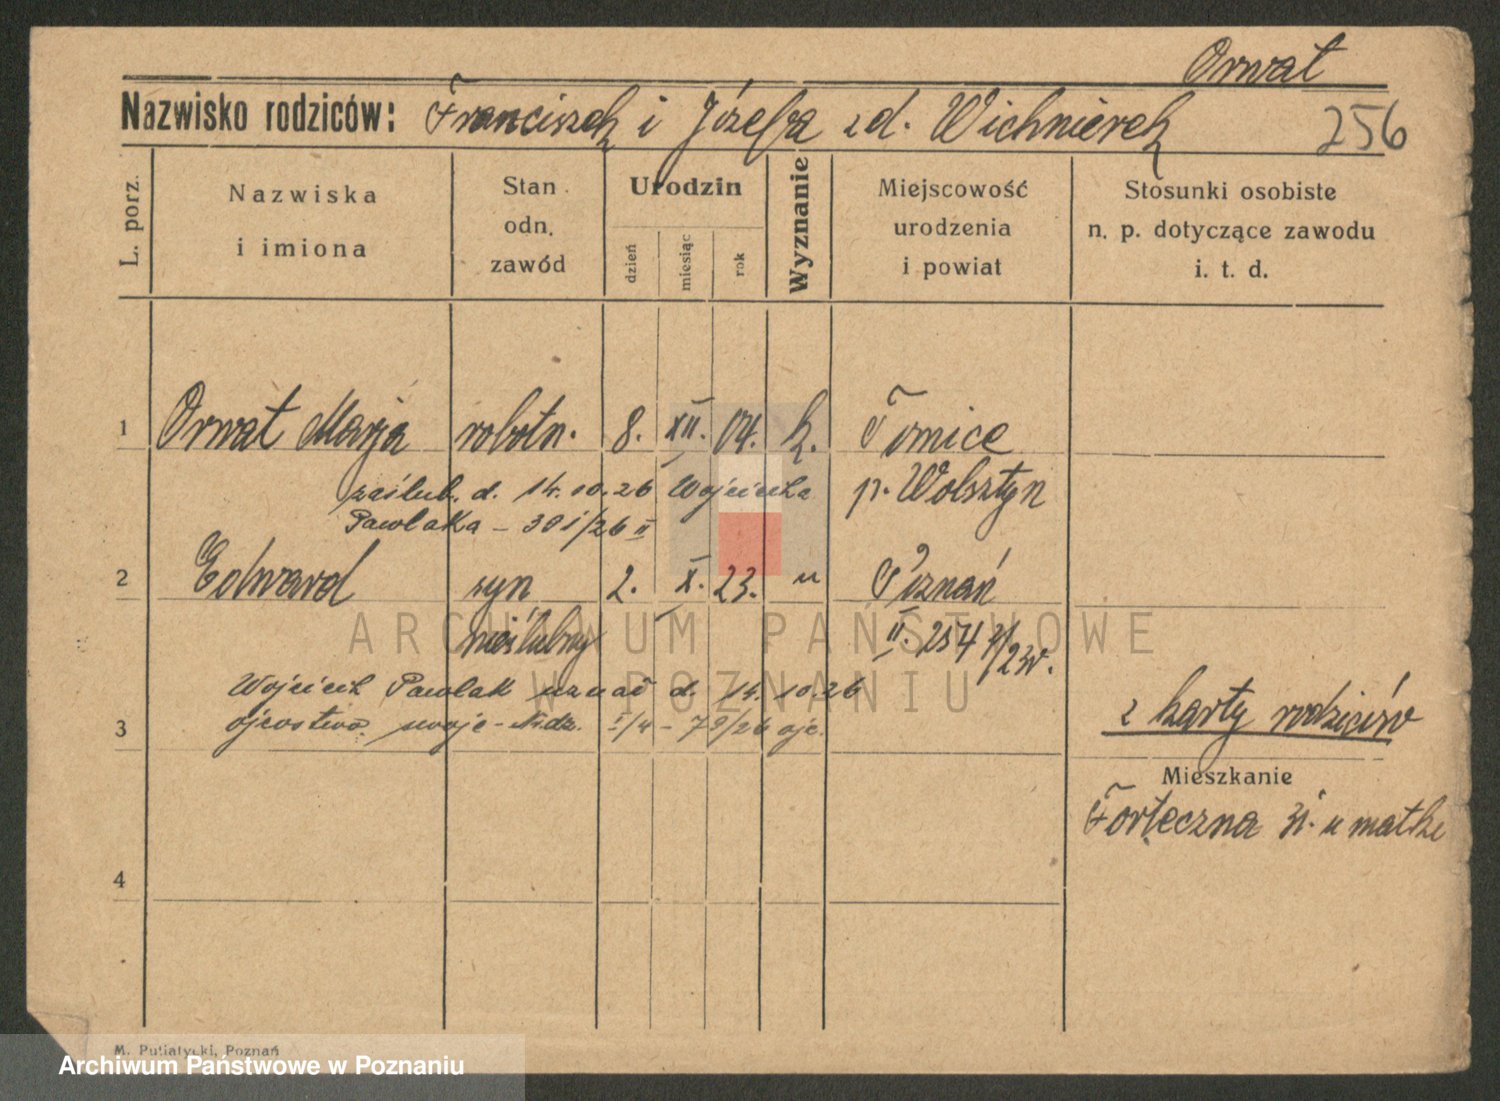 Orwat
Nazwisko rodziców: Franciszek i Józefa z d. Wichnierek 256
L. porz.
Nazwiska
i imiona
Stan
odn.
zawód
Urodzin
dzień
miesiąc
rok
Wyznanie
Miejscowość
urodzenia
i powiat
Stosunki osobiste
n. p. dotyczące zawodu
i. t. d.
1 Orwat Marja robotn. 8. XII. 04. k. Tomice
zaślub. d. 14.10.26 Wojciecha p. Wolsztyn
Pawlaka – 301/26 II
2 Edward syn 2. X. 23. " Poznań
nieślubny II. 254
Wojciech Pawlak uznał d. 14.10.26
3 ojcostwo swoje
z karty rodziców
Mieszkanie
Forteczna 31. u matki
4
M. Putiatycki, Poznań
ARCHIWUM PAŃSTWOWE
W POZNANIU
Archiwum Państwowe w Poznaniu